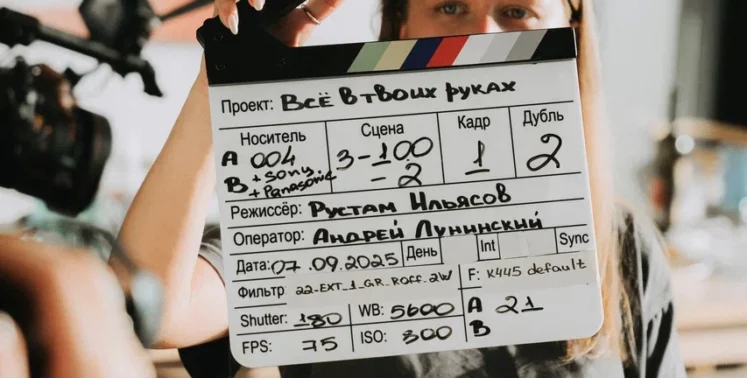 Проект: Всё в твоих руках
Носитель Сцена Кадр Дубль
A 004 3-100 1 2
B + sony - 2
+ Panasonic
Режиссёр: Рустам Ильясов
Оператор: Андрей Лунинский
Дата: 07.09.2025 День Int Sync
Фильтр 22-EXT_1_GR_Roff_2W F: K445 default
Shutter: 180 WB: 5600 A 21
FPS: 75 ISO: 800 B